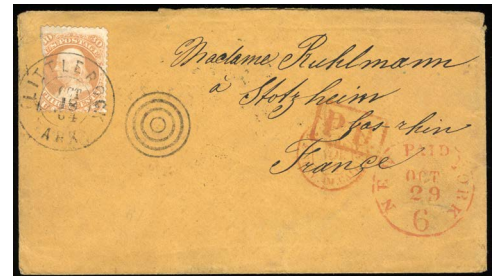 LITTLE ROCK
OCT
18
64
ARK.
Madame Ruhlmann
à Stotzheim
bas-rhin
France
NEW YORK
PAID
OCT
29
6